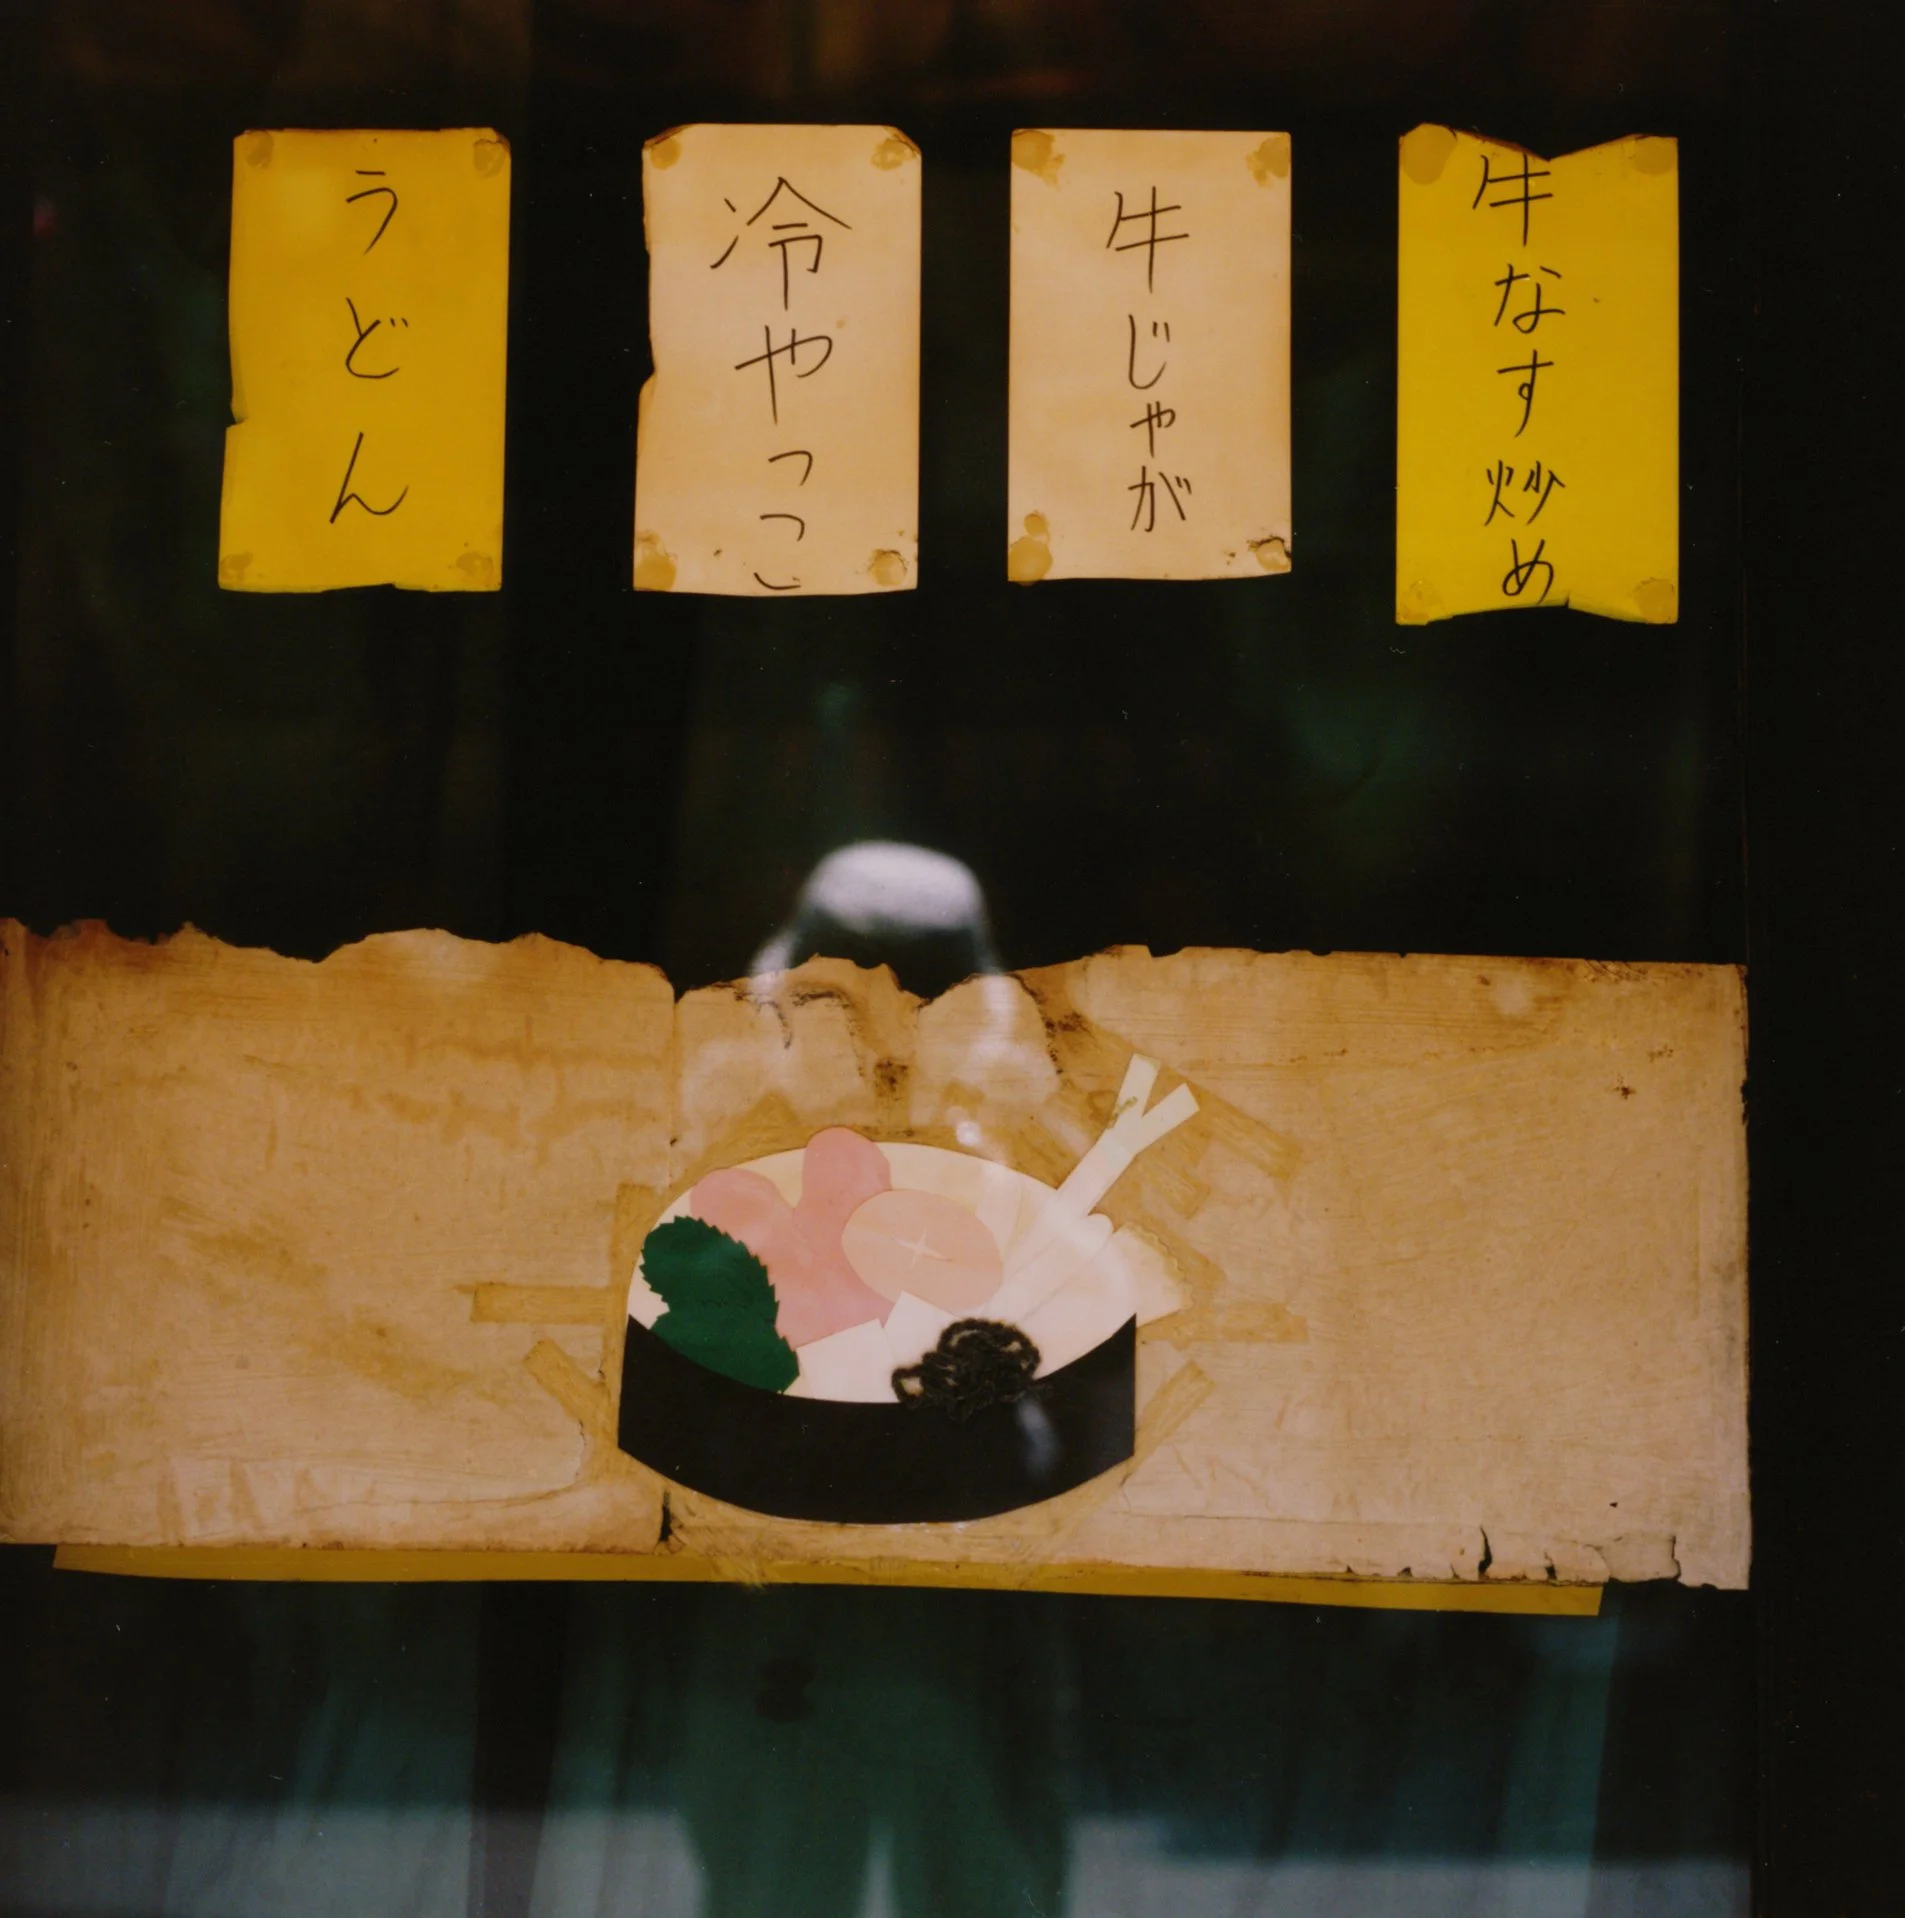 牛なす炒め
牛じゃが
冷やっこ
うどん